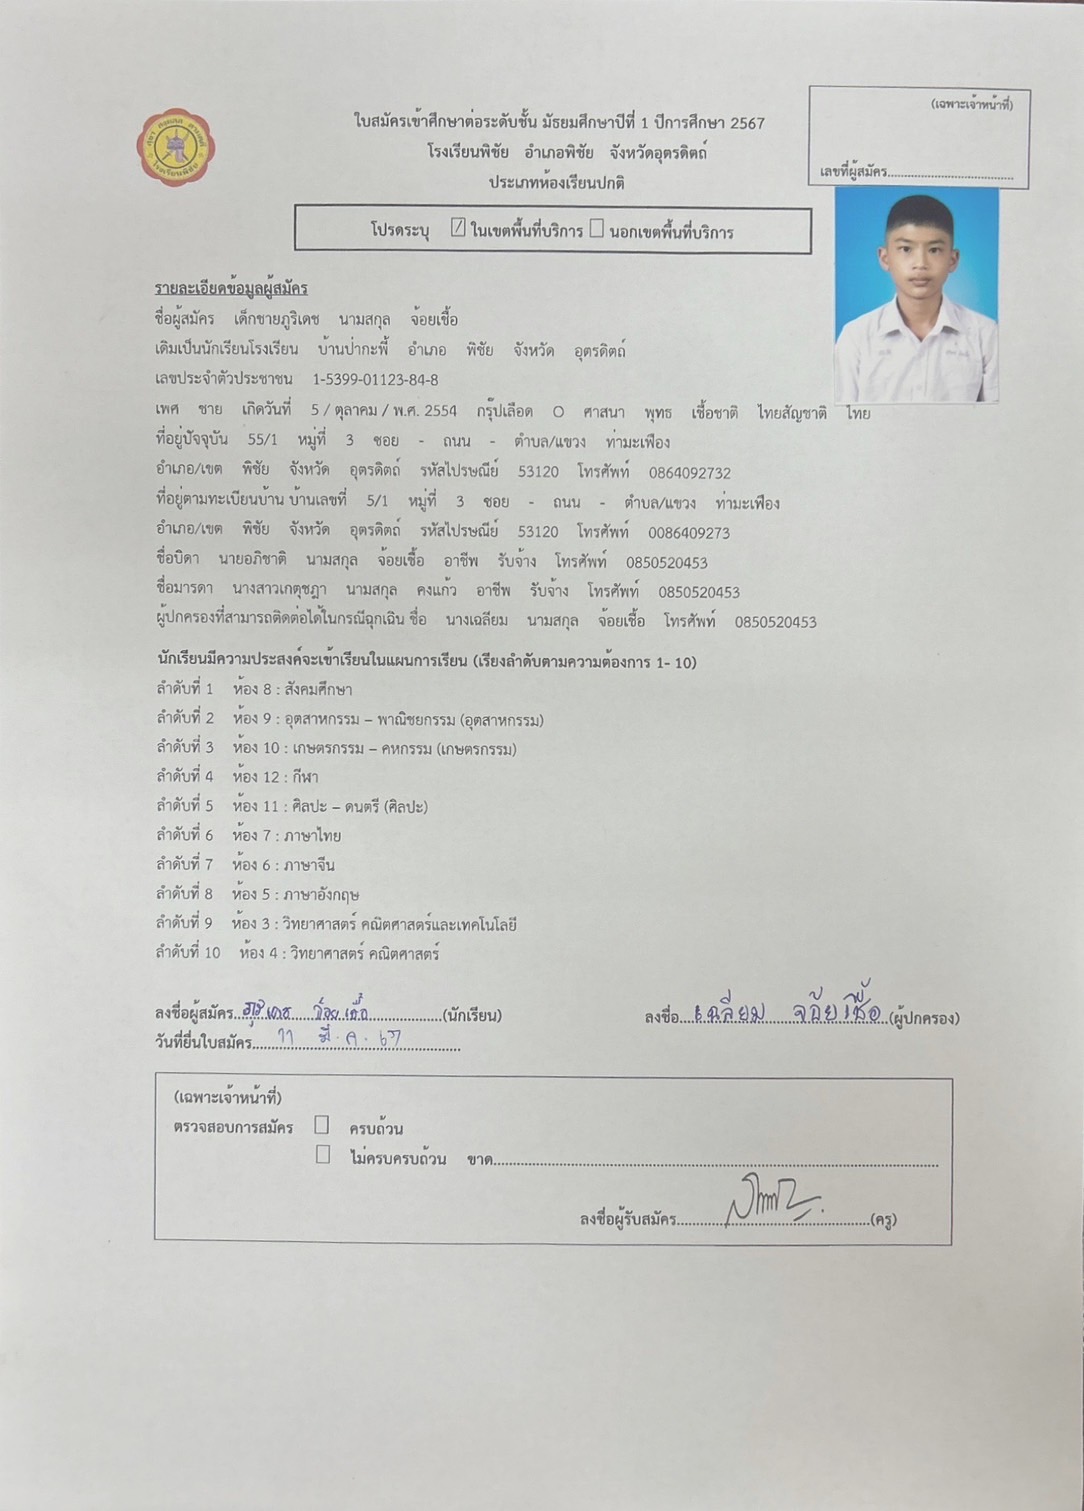 (เฉพาะเจ้าหน้าที่)
ใบสมัครเข้าศึกษาต่อระดับชั้น มัธยมศึกษาปีที่ 1 ปีการศึกษา 2567
โรงเรียนพิชัย อำเภอพิชัย จังหวัดอุตรดิตถ์
เลขที่ผู้สมัคร
ประเภทห้องเรียนปกติ
โปรดระบุ ในเขตพื้นที่บริการ นอกเขตพื้นที่บริการ
รายละเอียดข้อมูลผู้สมัคร
ชื่อผู้สมัคร เด็กชายภูริเดช นามสกุล จ้อยเชื้อ
เดิมเป็นนักเรียนโรงเรียน บ้านป่ากะพี้ อำเภอ พิชัย จังหวัด อุตรดิตถ์
เลขประจำตัวประชาชน 1-5399-01123-84-8
เพศ ชาย เกิดวันที่ 5 / ตุลาคม / พ.ศ. 2554 กรุ๊ปเลือด O ศาสนา พุทธ เชื้อชาติ ไทยสัญชาติ ไทย
ที่อยู่ปัจจุบัน 55/1 หมู่ที่ 3 ซอย - ถนน - ตำบล/แขวง ท่ามะเฟือง
อำเภอ/เขต พิชัย จังหวัด อุตรดิตถ์ รหัสไปรษณีย์ 53120 โทรศัพท์ 0864092732
ที่อยู่ตามทะเบียนบ้าน บ้านเลขที่ 5/1 หมู่ที่ 3 ซอย - ถนน - ตำบล/แขวง ท่ามะเฟือง
อำเภอ/เขต พิชัย จังหวัด อุตรดิตถ์ รหัสไปรษณีย์ 53120 โทรศัพท์ 0086409273
ชื่อบิดา นายอภิชาติ นามสกุล จ้อยเชื้อ อาชีพ รับจ้าง โทรศัพท์ 0850520453
ชื่อมารดา นางสาวเกตุชฎา นามสกุล คงแก้ว อาชีพ รับจ้าง โทรศัพท์ 0850520453
ผู้ปกครองที่สามารถติดต่อได้ในกรณีฉุกเฉิน ชื่อ นางเฉลียม นามสกุล จ้อยเชื้อ โทรศัพท์ 0850520453
นักเรียนมีความประสงค์จะเข้าเรียนในแผนการเรียน (เรียงลำดับตามความต้องการ 1- 10)
ลำดับที่ 1 ห้อง 8 : สังคมศึกษา
ลำดับที่ 2 ห้อง 9 : อุตสาหกรรม – พาณิชยกรรม (อุตสาหกรรม)
ลำดับที่ 3 ห้อง 10 : เกษตรกรรม – คหกรรม (เกษตรกรรม)
ลำดับที่ 4 ห้อง 12 : กีฬา
ลำดับที่ 5 ห้อง 11 : ศิลปะ – ดนตรี (ศิลปะ)
ลำดับที่ 6 ห้อง 7 : ภาษาไทย
ลำดับที่ 7 ห้อง 6 : ภาษาจีน
ลำดับที่ 8 ห้อง 5 : ภาษาอังกฤษ
ลำดับที่ 9 ห้อง 3 : วิทยาศาสตร์ คณิตศาสตร์และเทคโนโลยี
ลำดับที่ 10 ห้อง 4 : วิทยาศาสตร์ คณิตศาสตร์
ลงชื่อผู้สมัคร ภูริเดช จ้อยเชื้อ (นักเรียน) ลงชื่อ เฉลียม จ้อยเชื้อ (ผู้ปกครอง)
วันที่ยื่นใบสมัคร 11 มี.ค. 67
(เฉพาะเจ้าหน้าที่)
ตรวจสอบการสมัคร ครบถ้วน
ไม่ครบครบถ้วน ขาด
ลงชื่อผู้รับสมัคร (ครู)